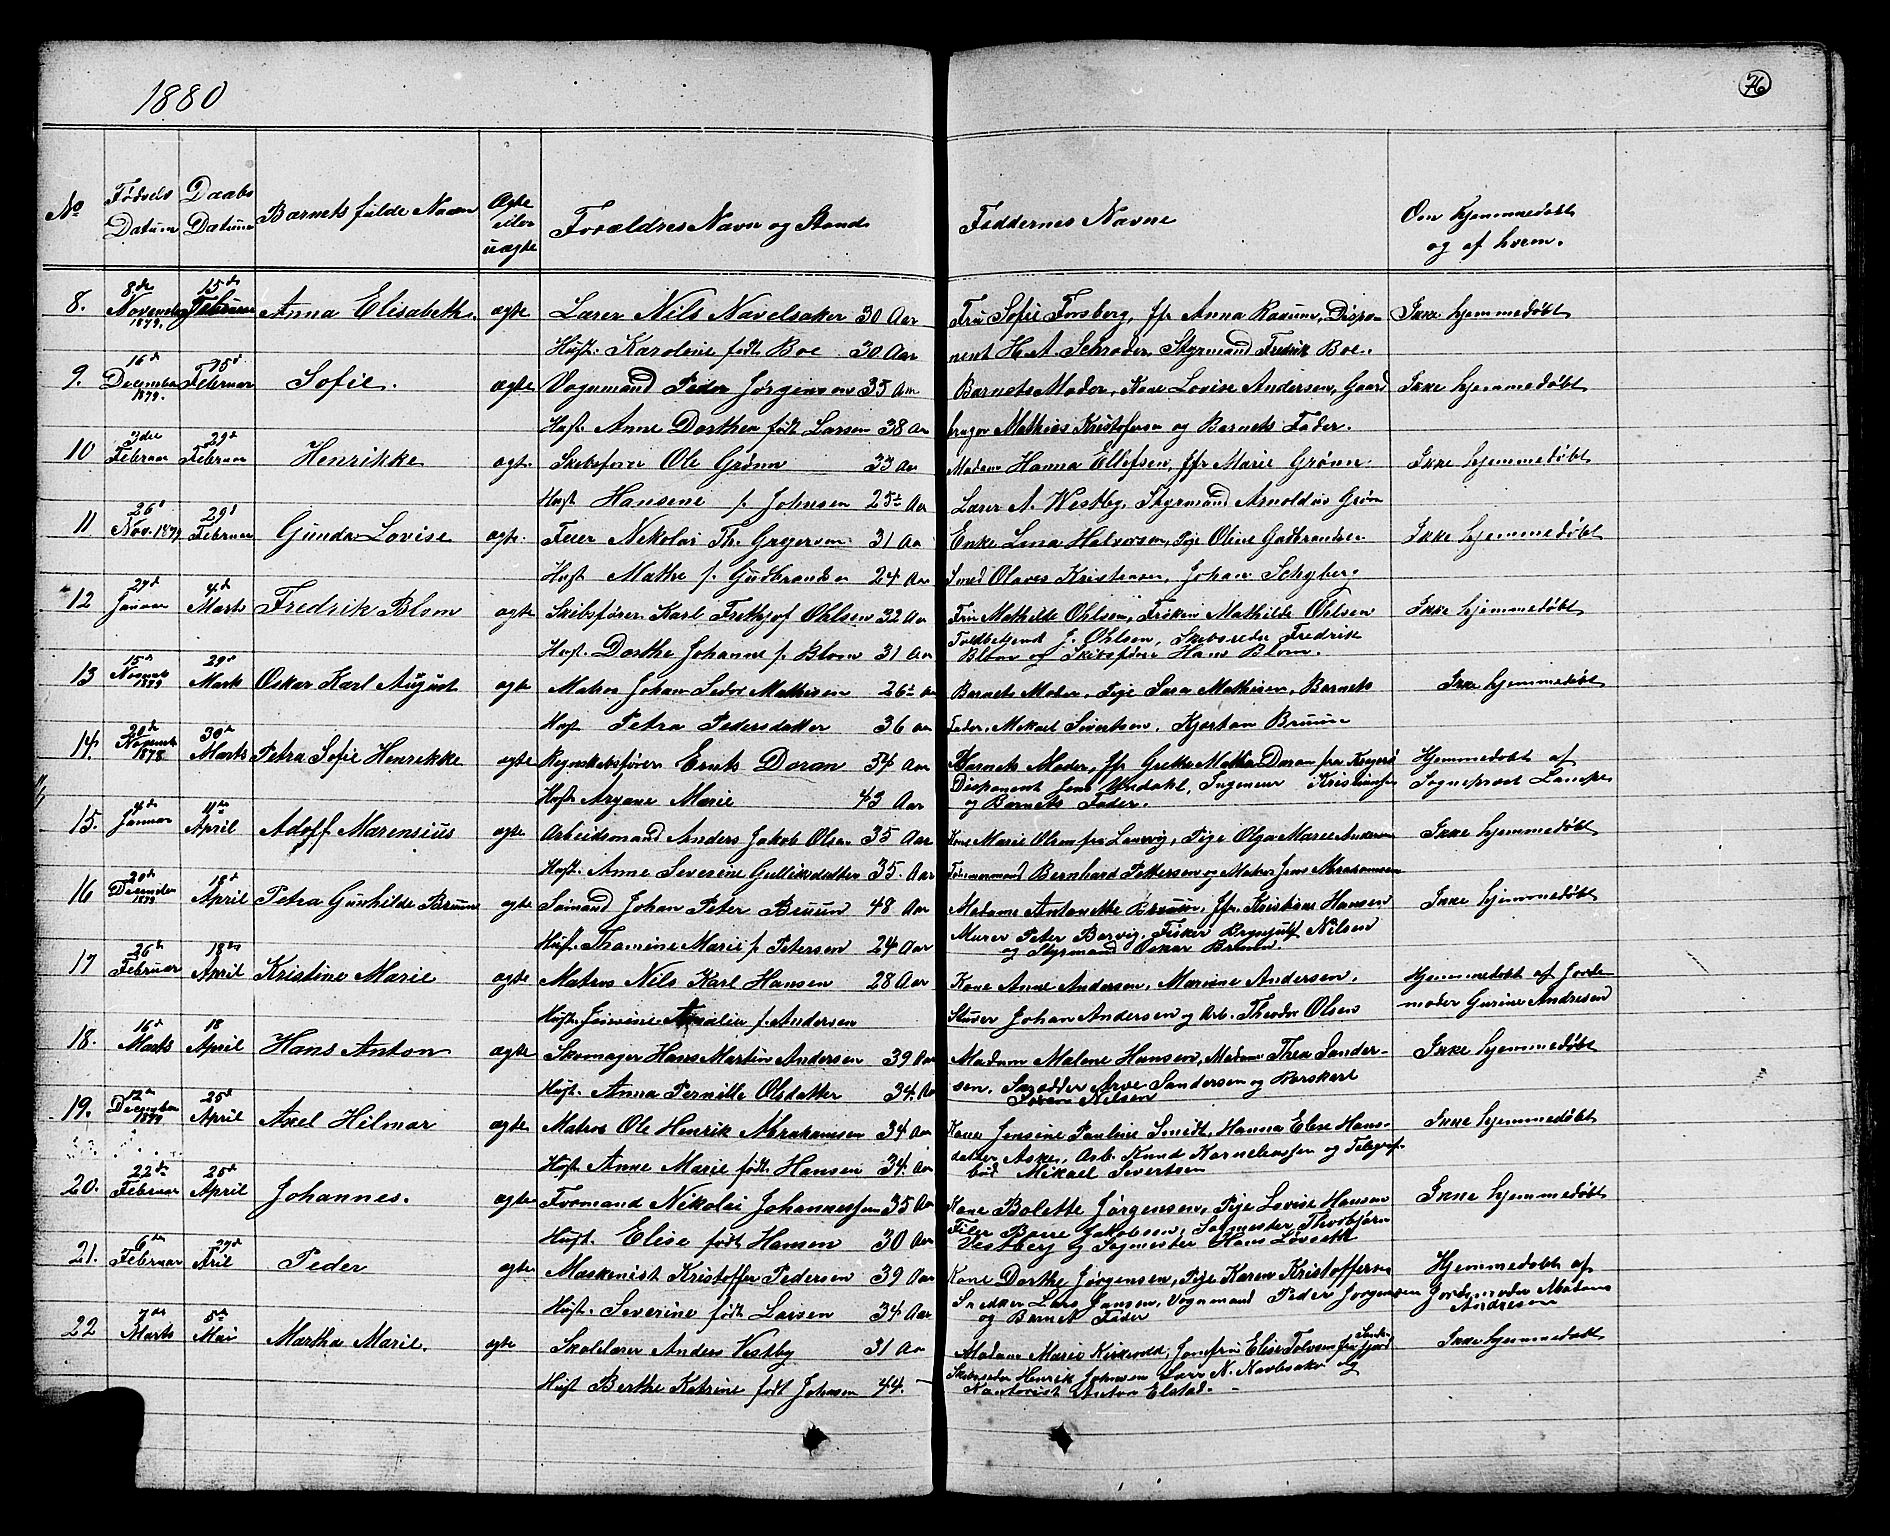 1880
76
No
Fødsels Datum
Daabs Datum
Barnets fulde Navn
Ægte eller uægte
Forældres Navn og Stand
Faddernes Navne
Om hjemmedøbt og af hvem.
8. 8de November 1879. 15de Februar Anna Elisabeth. ægte Lærer Nils Navelsaker 30 Aar Fru Sofie Forsberg, jfr Anna Ravum, Dispo- Ikke hjemmedøbt
Hust. Karoline født Boe 30 Aar nent H. A. Schrøder, Styrmand Fredrik Boe.
9. 16d December 1879. 15d Februar Sofie. ægte Vognmand Peder Jørgensen 35 Aar Barnets Moder, Kone Lovise Andersen, Gaard Ikke hjemmedøbt
Hust. Anne Dorthea født Larsen 38 Aar bruger Mathias Kristofersen og Barnets Fader.
10 3die Februar 29d Februar Henrikke ægte. Skibsfører Ole Grønn 33 Aar Madam Hanna Ellefsen, Jfr Marie Grønn Ikke hjemmedøbt
Hust Hansene f. Johnsen 25 Aar Lærer A. Westby, Styrmand Arnoldus Grøn
11 26d Nov. 1879 29d Februar Gunda Lovise ægte. Feier Nikolai Th. Gregersen 31 Aar Enke Lina Halvorsen, Pige Oline Gudbrandsen Ikke hjemmedøbt
Hust Mathe f. Gudbrandsen 24 Aar Smed Olaves Kristensen, Johan Schyberg
12 27d Januar 4d Marts Fredrik Blom ægte Skibsfører Karl Frethjof Ohlsen 32 Aar Fru Mathilde Ohlsen, Frøken Mathilde Ohlsen Ikke hjemmedøbt
Toldbetjent J. Ohlsen, Skibsreder Fredrik
Hust. Dorthe Johanne f. Blom 31 Aar Blom og Skibsfører Hans Blom.
13 15d 1879 29d Mark Oskar Karl August ægte Matros Johan Mathisen 26 Aar Barnets Moder, Pige Sara Mathisen, Barnets Ikke hjemmedøbt
Hust Petra Pedersdatter 36 Aar Fader, Mikael Sivertsen, Kjerstan Bruun
14. 28de November 1878 30d Marts Petra Sofie Henrikke ægte Regnskabsfører Ernts Doran 34 Aar Barnets Moder, Jfr Grethe Doran fra Kragerø Hjemmedøbt af
Disponent Jens Ingeniør Kristiansen Sogneprest Lampe
Hust. Aryane Marie 43 Aar og Barnets Fader.
15. 4d Januar 11te April Adolf Marensius ægte Arbeidsmand Anders Jakob Olsen 35 Aar Kone Marie Olsen fra Laurvig, Pige Olga Marie Andersen Ikke hjemmedøbt
Hust. Anne Severine Gulliksdatter 35. Aar Tømmermand Bernhard Pettersen og Matros Jens Abrahamsen
16 20d December 1879 18d April Petra Gunhilde Bruun ægte Sømand Johan Peter Bruun 48 Aar Madame Antonette Bruun, Jfr. Kristine Hansen Ikke hjemmedøbt
Murer Peter Borvig, Fisker Brynjulf Nilsen
Hust. Thomine Marie f. Petersen 24 Aar og Styrmand Oskar Bruun
17 26de Februar 18de April Kristine Marie ægte Matros Nils Karl Hansen 28 Aar Kone Anne Andersen, Marine Andersen. Hjemmedøbt af Jorde-
Hust. Amalie f. Andersen Stuver Johan Andersen og Arb. Theodor Olsen moder Gurine Andresen
18. 16d Marts 18 April Hans Anton ægte Skomager Hans Martin Andersen 39 Aar Madam Malene Hansen, Madam Thea Sander- Ikke hjemmedøbt
Hust. Anna Pernille Olsdatter 34. Aar sen, Arve Sandersen og
Søren Nilsen
19. 12te December 1879 25d April Axel Hilmar ægte Matros Ole Henrik Abrahamsen 34 Aar Kone Jensine Pauline Smidt, Hanna Elise Hans- Ikke hjemmedøbt
datter Aske, Arb. Knud Korneliussen og Telegraf-
Hust Anne Marie født Hansen 34. Aar bud Mikael Sivertsen
20. 22de Februar 25d April Johannes. ægte Formand Nikolai Johannessen 35 Aar Kone Bolette Jørgensen, Pige Lovise Hansen Ikke hjemmedøbt
Filer Jakobsen, Sagmester Thorbjørn
Hust. Elise født Hansen 30 Aar Vestberg og Sagmester Hans Løvseth
21. 6te Februar 27d April Peder ægte Maskinist Kristoffer Pedersen 39 Aar Kone Dorthe Jørgensen, Pige Karen Kristoffersen Hjemmedøbt af
Snedker Lars Jansen, Vognmand Peder Jørgensen Jordemoder Madam
Hust. Severine født Larsen 34 Aar og Barnet Fader Andresen
22 7de Marts 5te Mai Martha Marie. ægte Skolelærer Anders Vestby 31 Aar Madam Marie Kirkevold, Jomfru Elise Tolvsen fra Sandefjord Ikke hjemmedøbt
Skibsreder Henrik Johnsen Lærer N. Navelsaker og
Hust Berthe Katrine født Johnsen 44. Anton Elstad.